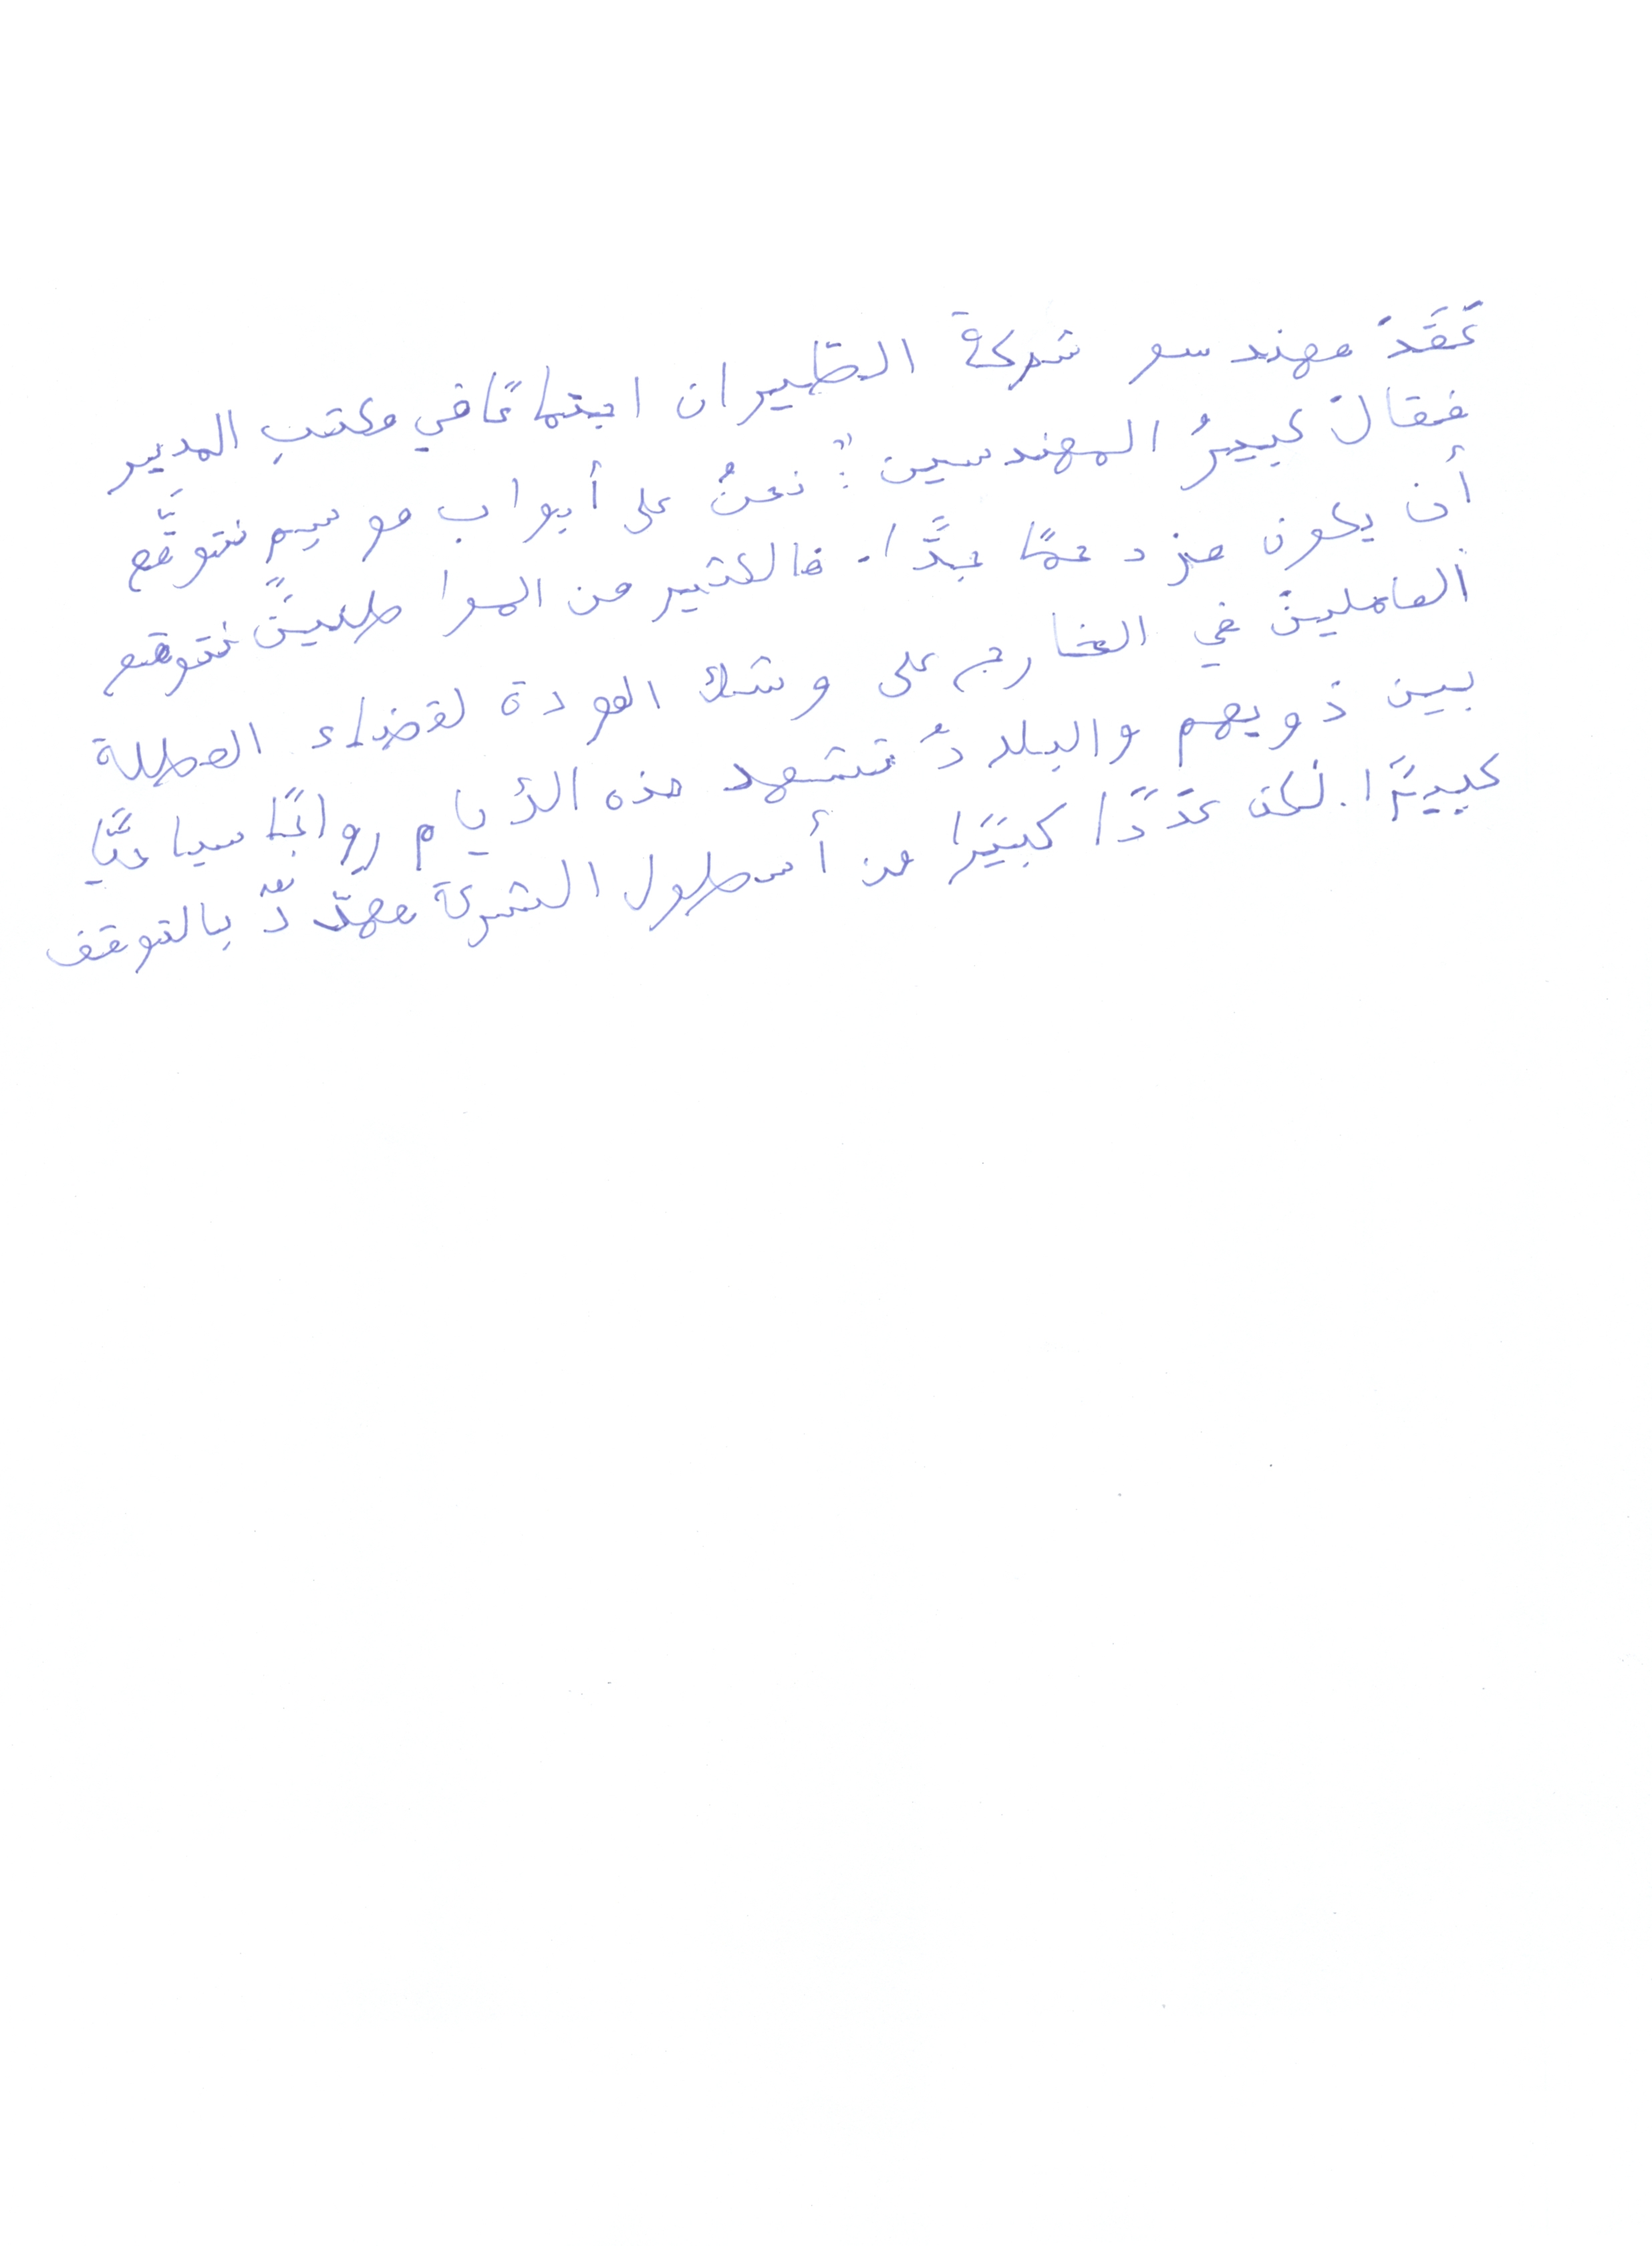 عَقَدَ مهندسو شركة الطّيران اجتماعًا في مكتبِ المدير
فقالَ كبيرُ المهندسين: "نحنُ على أبواب موسِمٍ نتوقَّع
أن يكون مزدحمًا جدًّا. فالكثير من المواطنينَ نتوقع
العاملينَ في الخارج على وشك العودة لقضاء العطلة
بين ذويهم والبلادُ تشهد هذه الأيام رواجًا سياحيًّا
كبيرًا. لكنَ عَدَدًا كبيَرًا من أسطول الشركة مهدّدٌ بالتوقف